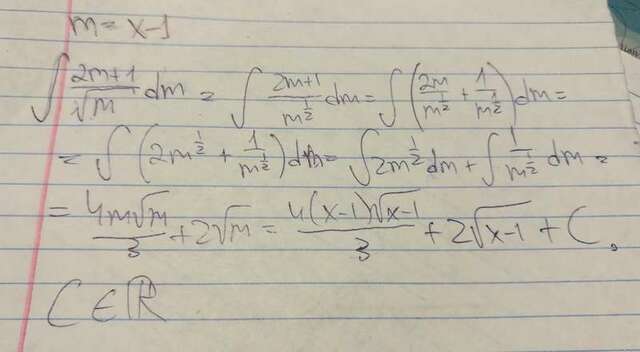 m = x-1
∫ (2m+1)/√m dm = ∫ (2m+1)/m^(1/2) dm = ∫ (2m/m^(1/2) + 1/m^(1/2)) dm =
= ∫ (2m^(1/2) + 1/m^(1/2)) dm = ∫ 2m^(1/2) dm + ∫ 1/m^(1/2) dm =
= 4m√m/3 + 2√m = 4(x-1)√(x-1)/3 + 2√(x-1) + C,
C ∈ ℝ